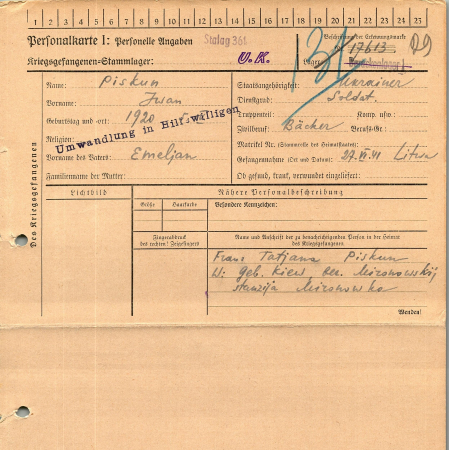 1 2 3 4 5 6 7 8 9 10 11 12 13 14 15 16 17 18 19 20 21 22 23 24 25
Personalkarte I: Personelle Angaben
Stalag 361
Beschriftung der Erkennungsmarke
Nr. 17613
D9
Kriegsgefangenen-Stammlager:
V.K.
Lager:
Des Kriegsgefangenen
Name: Piskun
Vorname: Iwan
Geburtstag und -ort: 1920
Religion:
Umwandlung in Hilfswilligen
Vorname des Vaters: Emeljan
Familienname der Mutter:
Staatsangehörigkeit: Ukrainer
Dienstgrad: Soldat.
Truppenteil: Komp. usw.:
Zivilberuf: Bäcker Berufs-Gr.:
Matrikel Nr. (Stammrolle des Heimatstaates):
Gefangennahme (Ort und Datum): 27.VI.41 Litwa
Ob gesund, krank, verwundet eingeliefert:
Lichtbild
Nähere Personalbeschreibung
Größe
Haarfarbe
Besondere Kennzeichen:
Fingerabdruck
des rechten! Zeigefingers
Name und Anschrift der zu benachrichtigenden Person in der Heimat
des Kriegsgefangenen
Frau: Tatjana Piskun
W: geb. Kiew Mironowskij
stanzija Mironowka
Wenden!